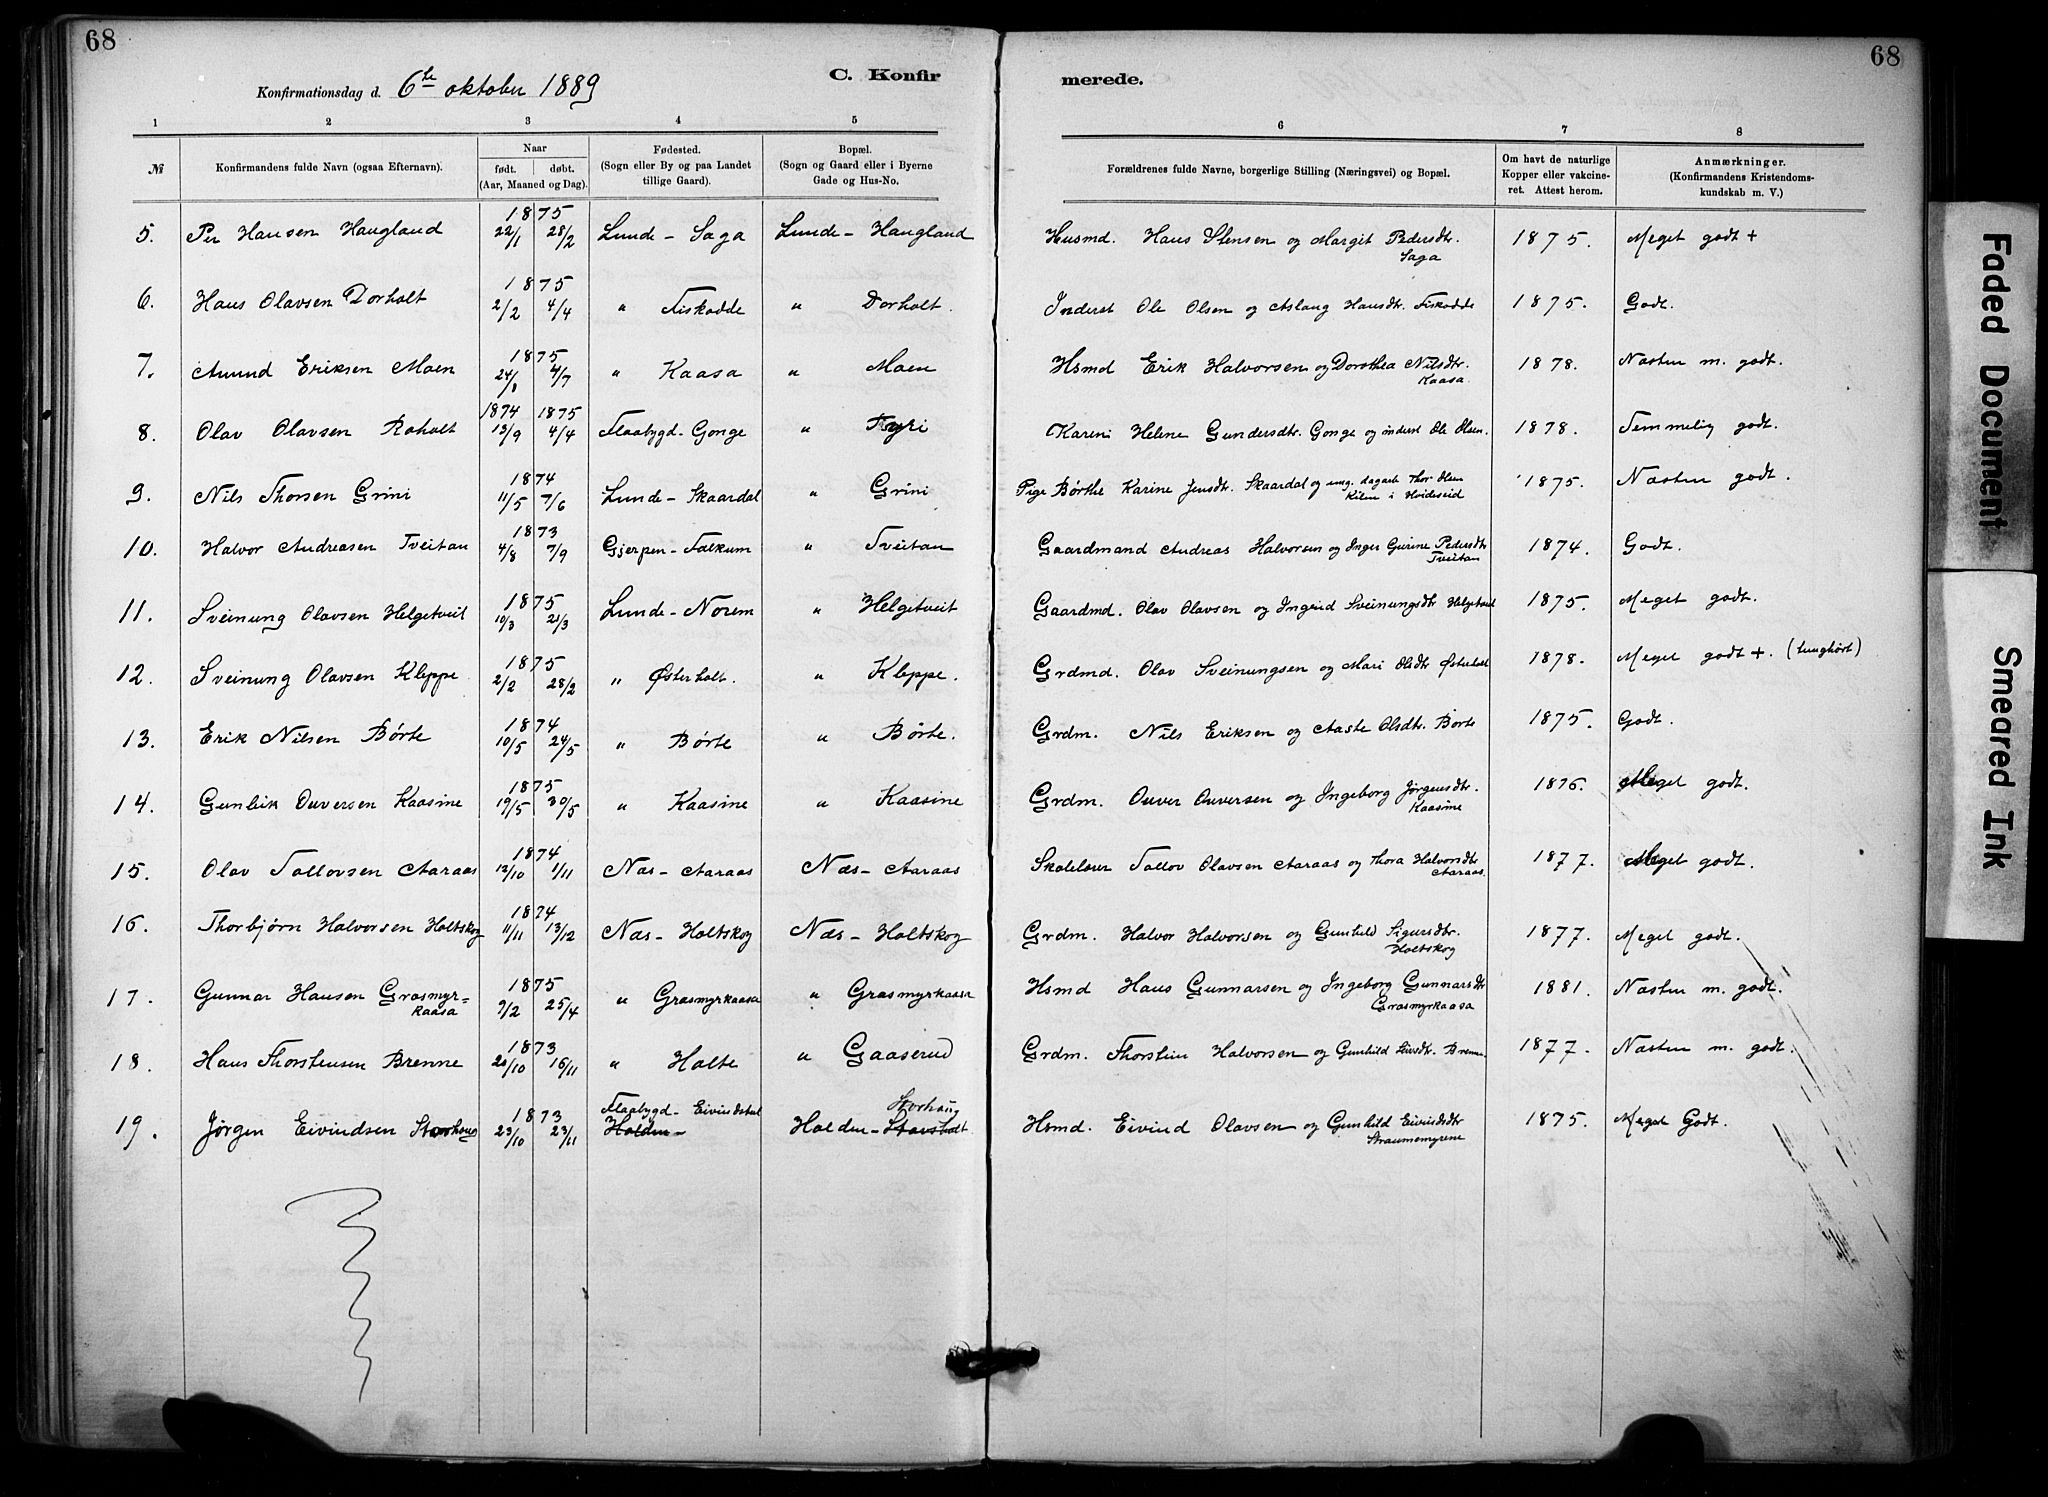 68
68
Konfirmationsdag d. 6te oktober 1889
C. Konfir
merede.
1 2 3 4 5 6 7 8
№
Konfirmandens fulde Navn (ogsaa Efternavn).
Naar
født. døbt.
(Aar, Maaned og Dag).
Fødested.
(Sogn eller By og paa Landet
tillige Gaard).
Bopæl.
(Sogn og Gaard eller i Byerne
Gade og Hus-No.
Forældrenes fulde Navne, borgerlige Stilling (Næringsvei) og Bopæl.
Om havt de naturlige
Kopper eller vakcine-
ret. Attest herom.
Anmærkninger.
(Konfirmandens Kristendoms-
kundskab m. V.)
1875
5. Per Hansen Haugland 22/1 28/2 Lunde - Saga Lunde - Haugland Husmd. Hans Stensen og Margit Pedersdtr. 1875. Meget godt +
Saga
1875
6. Hans Olavsen Dorholt 2/2 4/4 " Fiskodde " Dorholt. Inderst Ole Olsen og Aslaug Hansdtr. Fiskodde 1875. Godt.
1875
7. Amund Eriksen Moen 24/ 4/7 " Kaasa " Moen Hsmd Erik Halvorsen og Dorothea Nilsdtr. 1878. Næsten m. godt.
Kaasa.
1874 1875
8. Olav Olavsen Roholt 13/9 4/4 Flaabygd - Gonge " Karen Helene Gundersdtr. Gonge og inderst Ole Olsen. 1878. Temmelig godt.
1874
9. Nils Thorsen Grini 11/5 7/6 Lunde - Skaardal " Grini Pige Børthe Karine Jensdtr. Skaardal og ung. Thor Olsen 1875. Næsten godt.
Kilen i Hvideseid
1873
10. Halvor Andreasen Tveitan 4/8 7/9 Gjerpen - Falkum " Tveitan Gaardmand Andreas Halvorsen og Inger Gurine Pedersdtr 1874. Godt.
Tveitan
1875
11. Sveinung Olavsen Helgetveit 10/3 21/3 Lunde - Norem " Helgetveit Gaardmd. Olav Olavsen og Ingrid Sveinungsdtr Helgetveit 1875. Meget godt.
1875
12. Sveinung Olavsen Kleppe 2/2 28/2 " Østerholt. " Kleppe. Grdmd. Olav Sveinungsen og Mari Olsdtr Østerholt 1878. Meget godt +. (tunghørt)
1874
13. Erik Nilsen Børte 10/5 24/5 " Børte " Børte. Grdm. Nils Eriksen og Aaste Olsdtr. Børte 1875. Godt.
1875
14. Gunlik Ouversen Kaasine 19/5 30/5 " Kaasine " Kaasine Grdm. Ouver Ouversen og Ingeborg Jørgensdtr. 1876. Meget godt.
Kaasine
1874
15. Olav Tallovsen Aaraas 12/10 1/11 Næs - Aaraas Næs - Aaraas Skolelærer Tallov Olavsen Aaraas og Thora Halvorsdtr 1877. Meget godt.
Aaraas.
1874
16. Thorbjørn Halvorsen Holtskog 11/11 13/12 Næs - Holtskog Næs - Holtskog Grdm. Halvor Halvorsen og Gunhild Sigursdtr. 1877. Meget godt.
Holtskog
1875
17. Gunnar Hansen Græsmyr= 9/2 25/4 " Græsmyrkaasa " Græsmyrkaasa Hsmd Hans Gunnarsen og Ingeborg Gunnarsdtr 1881. Næsten m. godt.
kaasa
Græsmyrkaasa
1873
18. Hans Thorstensen Brenne 20/10 16/11 " Holte " Gaaserud Grdm. Thorstein Halvorsen og Gunhild Brenne. 1877. Næsten m. godt.
Flaabygd - Eivindstul Storhaug
1873
19. Jørgen Eivindsen Storhaug 23/10 23/11 Holden - Holden - Storsholt Hsmd. Eivind Olavsen og Gunhild Eivindsdtr 1875. Meget Godt.
Straumemyrene
Faded Document
Smeared Ink